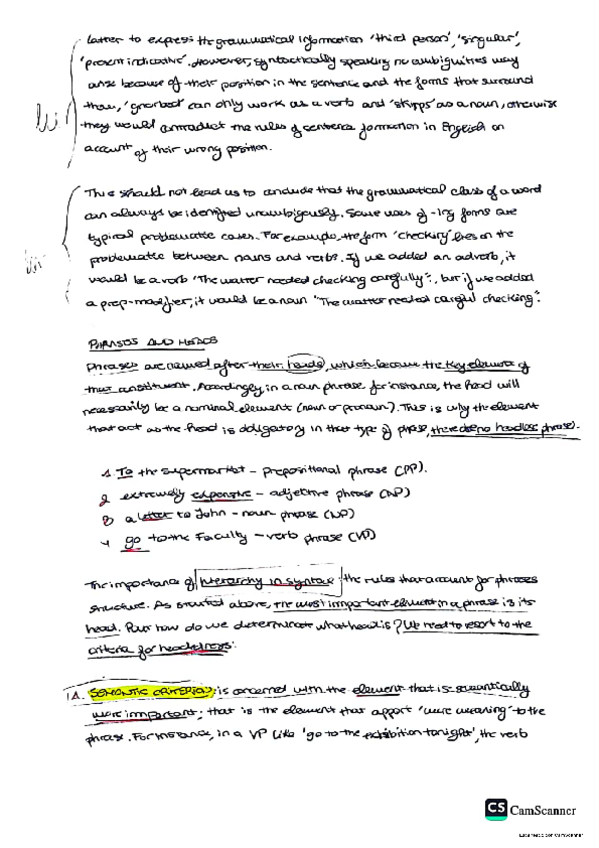 latter to express the grammatical information 'third person', 'singular',
'present indicative'. However, syntactically speaking no ambiguities may
arise because of their position in the sentence and the forms that surround
them, 'gnorbed' can only work as a verb and 'skipps' as a noun, otherwise
they would contradict the rules of sentence formation in English on
account of their wrong position.
This should not lead us to conclude that the grammatical class of a word
can always be identified unambigously. Some uses of -ing forms are
typical problematic cases. For example, the form 'checking' lies on the
problematic between nouns and verbs. If we added an adverb, it
would be a verb "The matter needed checking carefully"., but if we added
a prep-modifier, it would be a noun "The matter needed careful checking".
PHRASES AND HEADS
Phrases are named after their heads, which become the key element of
that constituent. Accordingly, in a noun phrase for instance, the head will
necessarily be a nominal element (noun or pronoun). This is why the element
that act as the head is obligatory in that type of phrase, there are no headless phrase).
1. To the supermarket - prepositional phrase (PP).
2 extremely expensive - adjective phrase (AP)
3) a letter to John - noun phrase (NP)
4 go to the Faculty - verb phrase (VP)
The importance of hierarchy in syntax: the rules that account for phrases
structure. As stated above, the most important element in a phrase is its
head. But how do we determinate what head is? We need to resort to the
criteria for headedness:
1A. SEMANTIC CRITERIA: is concerned with the element that is semantically
more important; that is the element that apport 'more meaning' to the
phrase. For instance, in a VP like 'go to the exhibition tonight', the verb
CS CamScanner